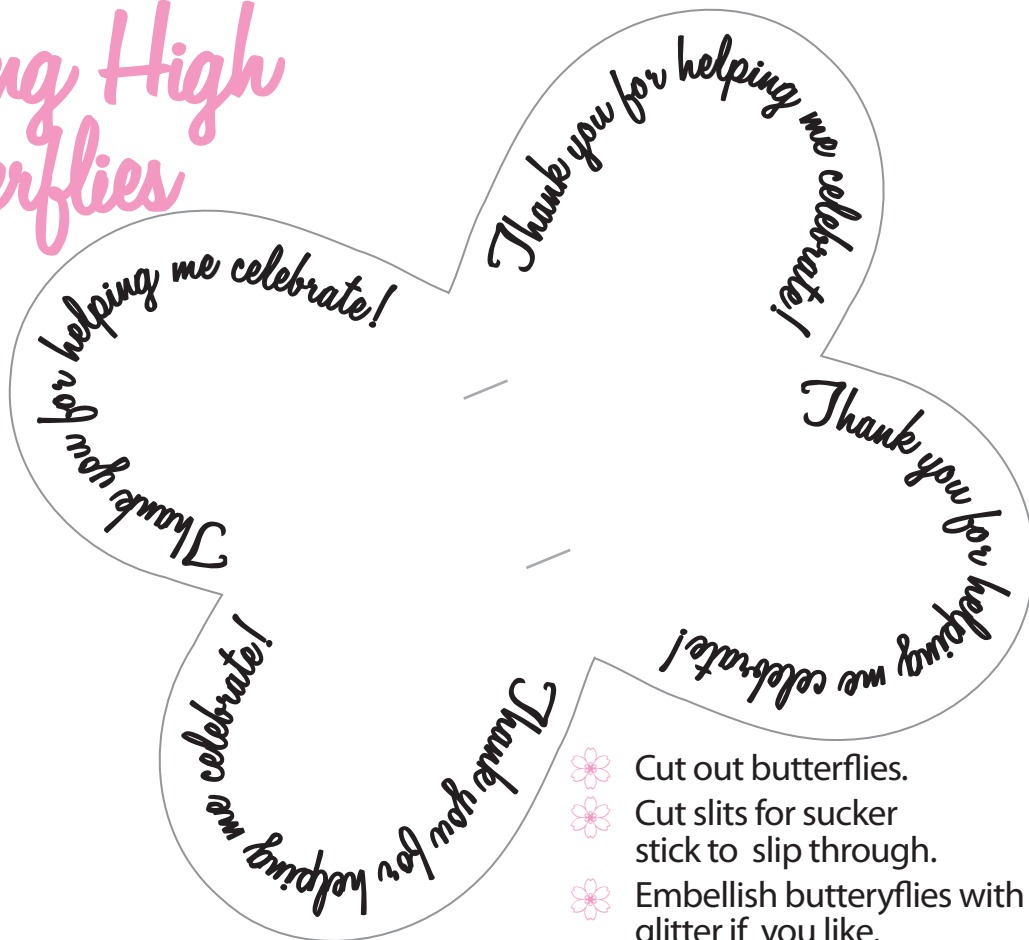 ng High
erflies
Thank you for helping me celebrate!
Thank you for helping me celebrate!
Thank you for helping me celebrate!
Thank you for helping me celebrate!
Cut out butterflies.
Cut slits for sucker
stick to slip through.
Embellish butteryflies with
glitter if you like.